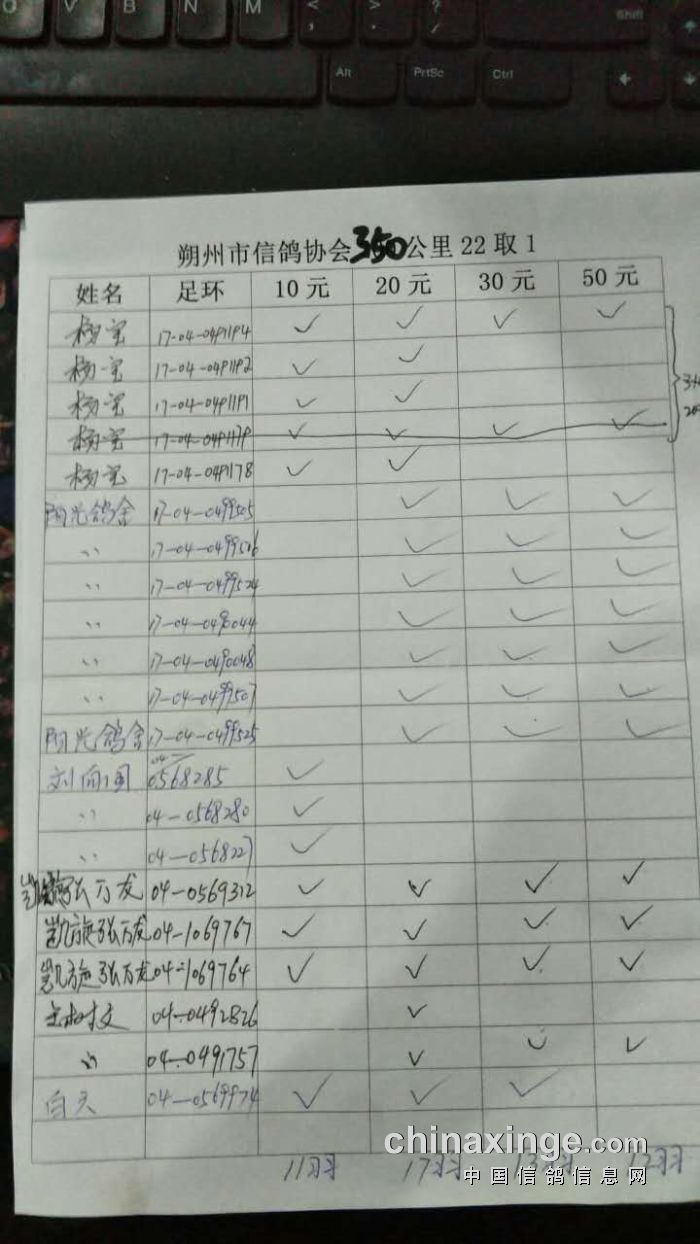 O V B N M < , > . ? /
Shift
Alt PrtSc Ctrl
朔州市信鸽协会350公里 22 取 1
姓名 足环 10 元 20 元 30 元 50 元
杨宝 17-04-0491194 ✓ ✓ ✓ ✓
杨宝 17-04-0491192 ✓ ✓
杨宝 17-04-0491191 ✓ ✓
杨宝 17-04-0491179 ✓ ✓ ✓ ✓
杨宝 17-04-0491178 ✓ ✓
阳光鸽舍 17-04-0499505 ✓ ✓ ✓
〃 17-04-0499506 ✓ ✓ ✓
〃 17-04-0499524 ✓ ✓ ✓
〃 17-04-0490044 ✓ ✓ ✓
〃 17-04-0490048 ✓ ✓ ✓
〃 17-04-0499507 ✓ ✓ ✓
阳光鸽舍 17-04-0499525 ✓ ✓ ✓
刘向国 04-0568285 ✓
〃 04-0568280 ✓
〃 04-0568227 ✓
凯旋张万龙 04-0569312 ✓ ✓ ✓ ✓
凯旋张万龙 04-1069767 ✓ ✓ ✓ ✓
凯旋张万龙 04-1069764 ✓ ✓ ✓ ✓
树文 04-0492826 ✓
〃 04-0491757 ✓ ✓ ✓
白天 04-0569974 ✓ ✓ ✓
11羽 17羽 13羽 12羽
chinaxinge.com
中国信鸽信息网